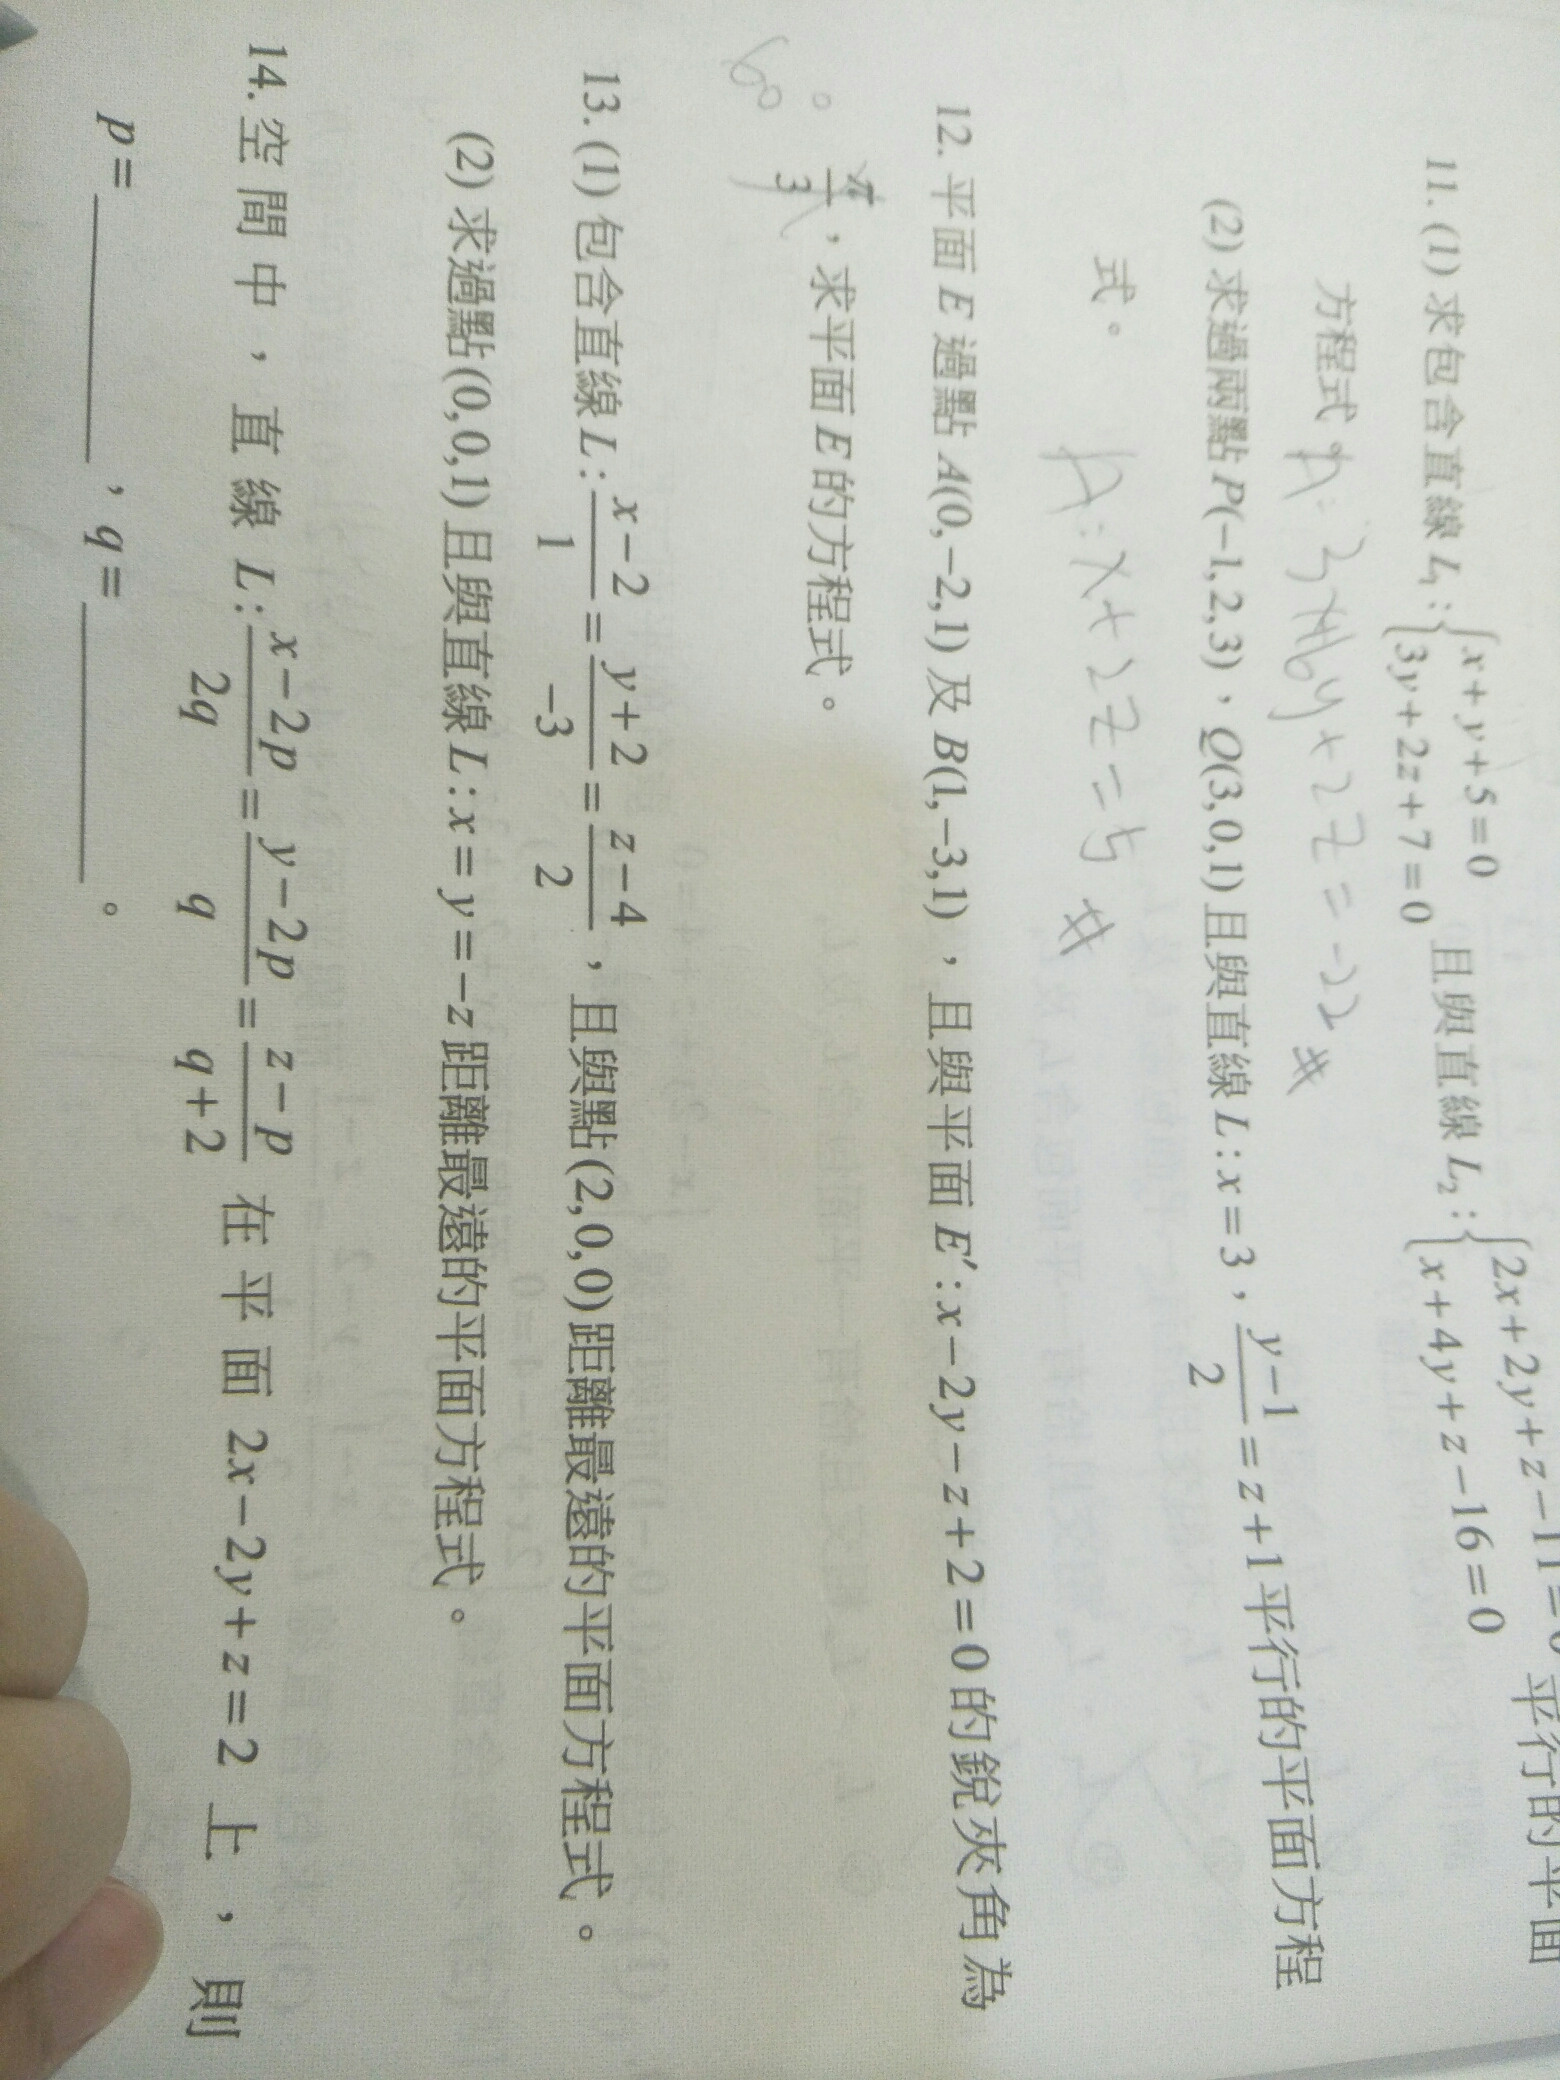 11. (1) 求包含直線 L₁ : { x + y + 5 = 0 , 3y + 2z + 7 = 0 且與直線 L₂ : { 2x + 2y + z − 11 = 0 , x + 4y + z − 16 = 0 平行的平面
方程式。 A: 3x+6y+2z=-22 #
(2) 求過兩點 P(−1,2,3)、Q(3,0,1) 且與直線 L : x = 3 , (y−1)/2 = z + 1 平行的平面方程
式。 A: x+2z=5 #
12. 平面 E 過點 A(0,−2,1) 及 B(1,−3,1) , 且與平面 E′ : x − 2y − z + 2 = 0 的銳夾角為
π/3 , 求平面 E 的方程式。
60°
13. (1) 包含直線 L : (x−2)/1 = (y+2)/−3 = (z−4)/2 , 且與點 (2,0,0) 距離最遠的平面方程式。
(2) 求過點 (0,0,1) 且與直線 L : x = y = −z 距離最遠的平面方程式。
14. 空間中,直線 L : (x−2p)/2q = (y−2p)/q = (z−p)/(q+2) 在平面 2x − 2y + z = 2 上,則
p = ________ , q = ________ 。